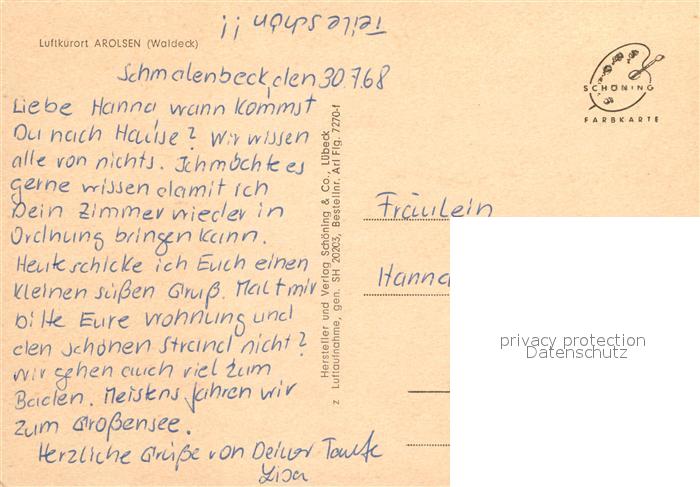 teile schön !!
Luftkurort AROLSEN (Waldeck)
Schmalenbeck, den 30.7.68
Liebe Hanna, wann kommst
Du nach Hause? Wir wissen
alle von nichts. Ich möchte es
gerne wissen damit ich
Dein Zimmer wieder in
Ordnung bringen kann.
Heute schicke ich Euch einen
kleinen süßen Gruß. Malt mir
bitte Eure Wohnung und
den schönen Strand nicht?
Wir gehen auch viel zum
Baden. Meistens fahren wir
zum Großensee.
Herzliche Grüße von Deiner Tante
Lisa
Hersteller und Verlag Schöning & Co., Lübeck
z Luftaufnahme, gen. SH 20203, Bestellnr. Arl Flg. 7270-f
SCHÖNING
FARBKARTE
Fräulein
Hanna
privacy protection
Datenschutz